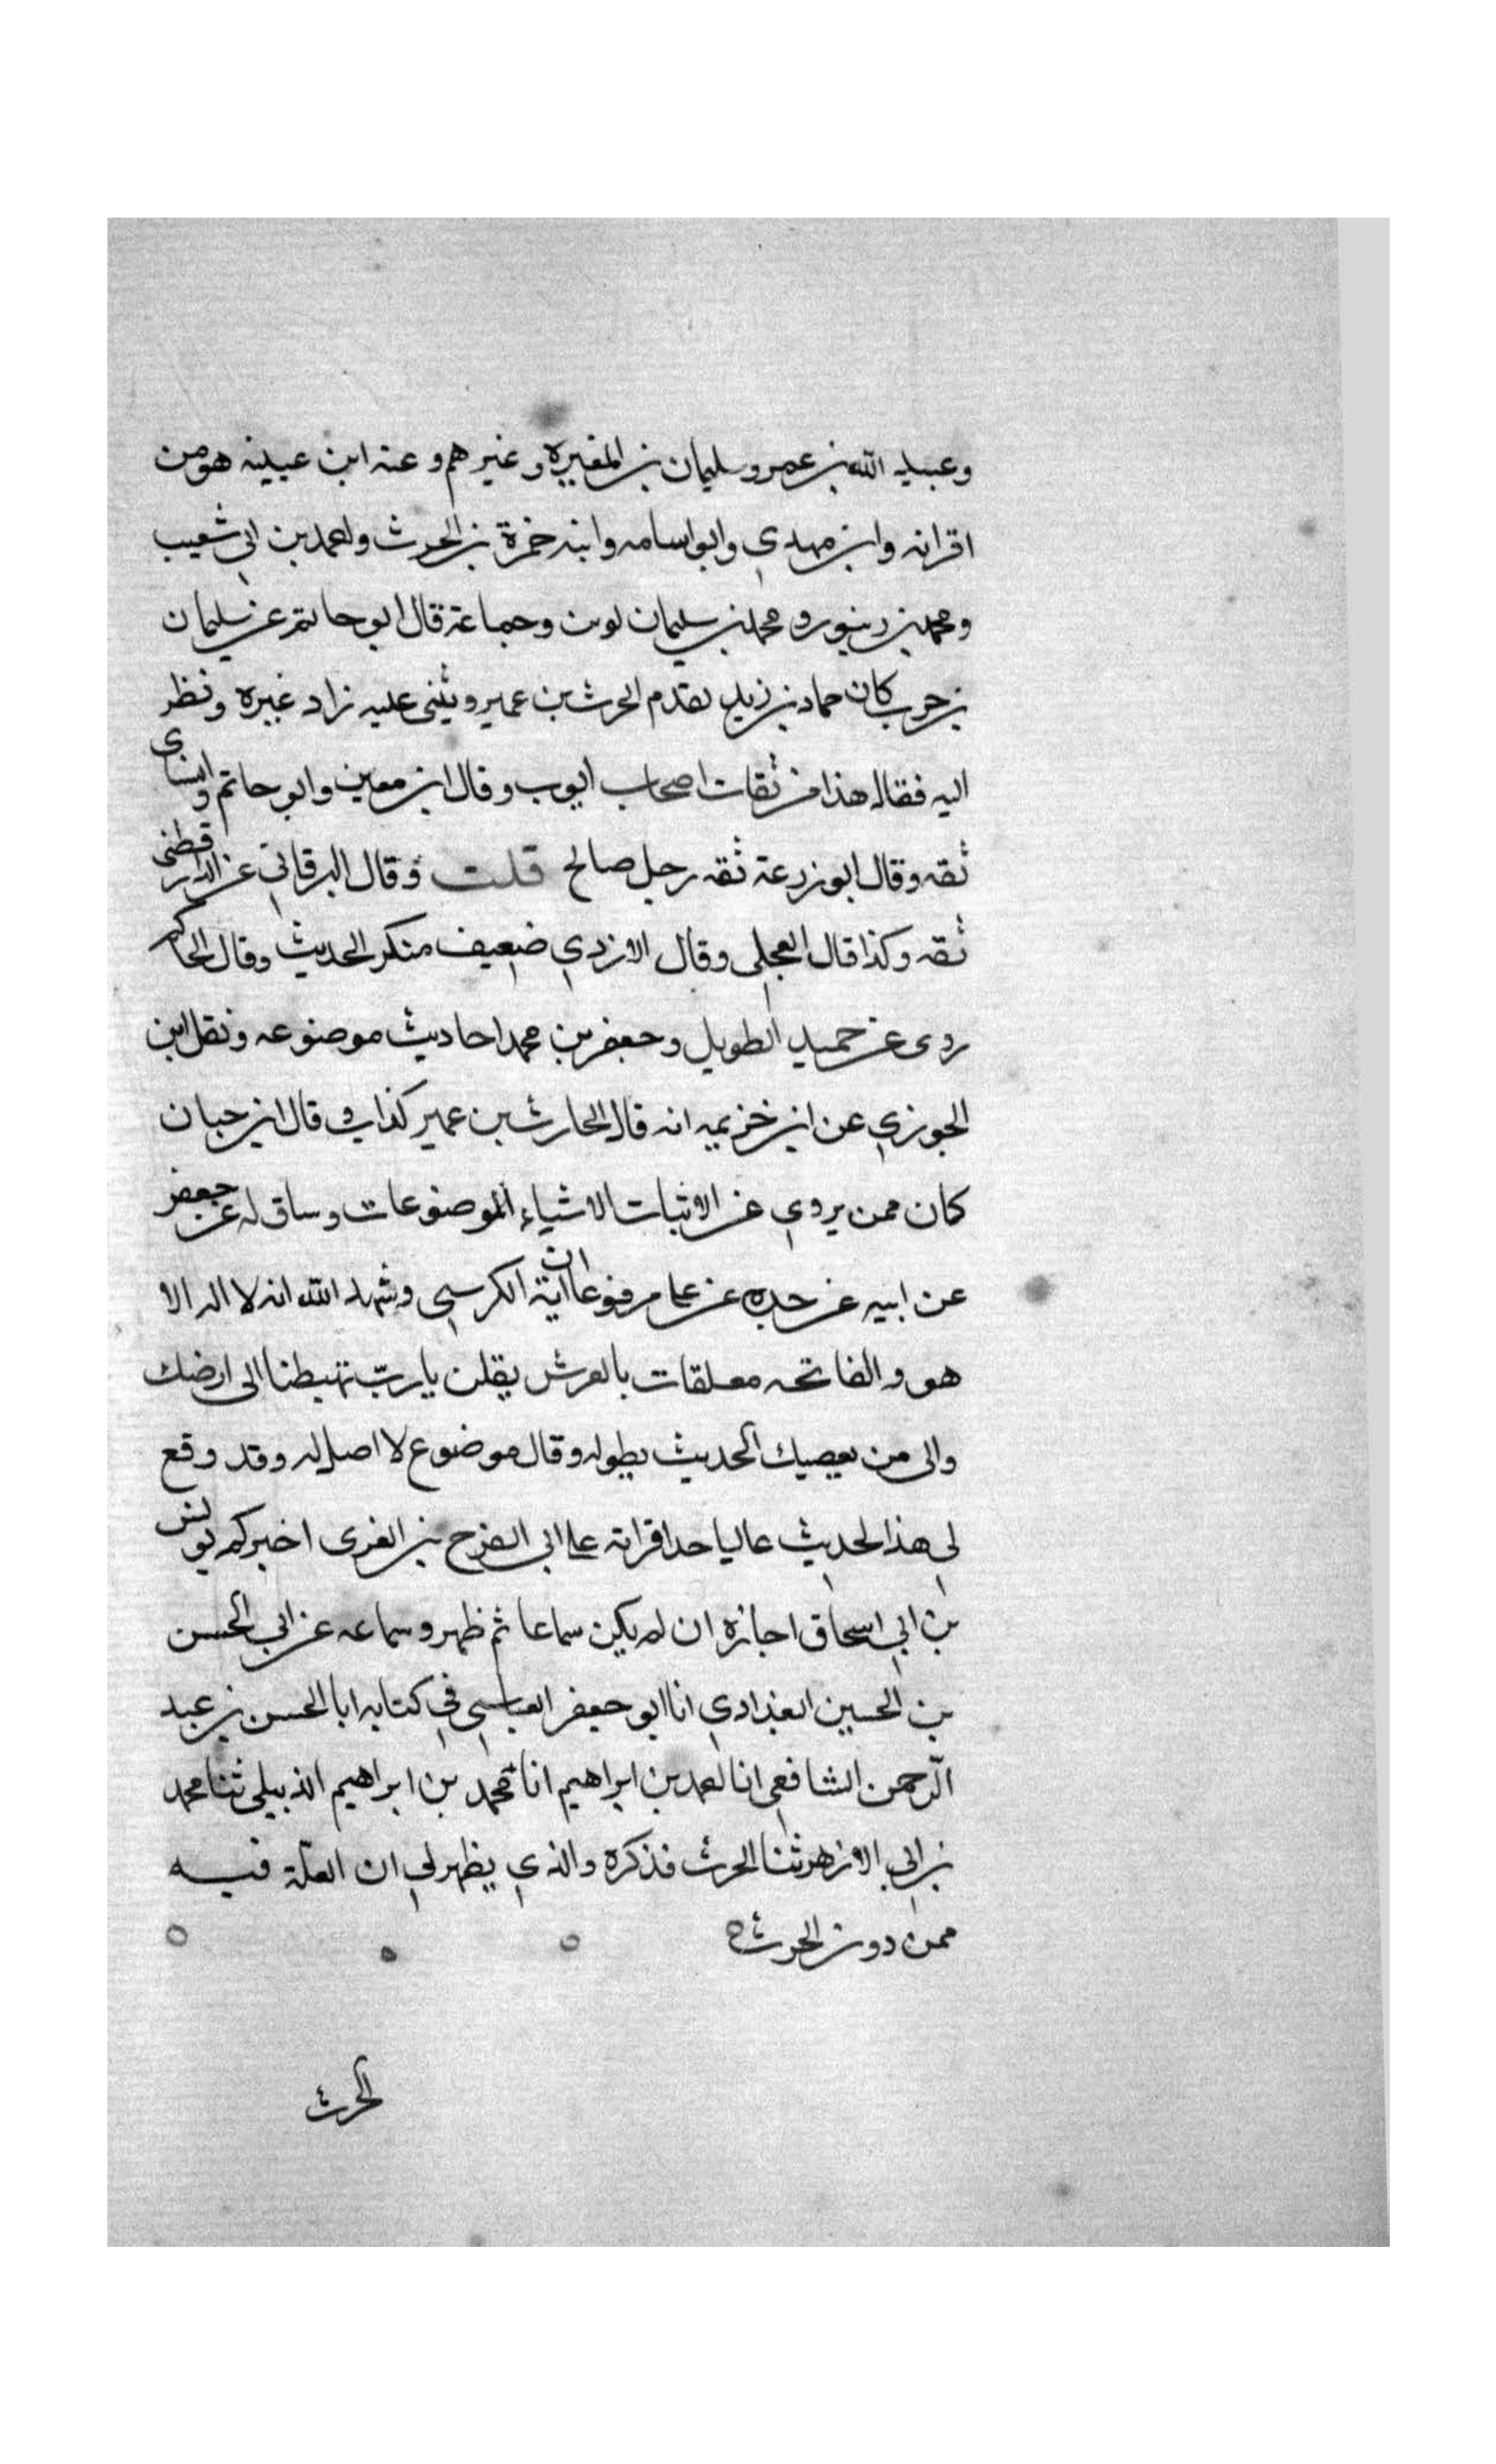 وعبيد الله بن عمر وسليمان بن المغيرة وغيرهم وعنه ابن عيينه هو من
اقرانه وابن مهدي وابو اسامه وابنه حمزة بن الحرث واحمد بن ابي شعيب
ومحمد بن زنبور ومحمد بن سليمان لوين وجماعة قال ابو حاتم عن سليمان
بن حرب كان حماد بن زيد يقدم الحرث بن عمير ويثني عليه زاد غيره ونظر
اليه فقال هذا من ثقات اصحاب ايوب وقال ابن معين وابو حاتم والنساى
ثقه وقال ابو زرعة ثقه رجل صالح قلت وقال البرقاني عن الدارقطني
ثقه وكذا قال العجلي وقال الازدي ضعيف منكر الحديث وقال الحاكم
روى عن حميد الطويل وجعفر بن محمد احاديث موضوعه ونقل ابن
الجوزي عن ابن خزيمه انه قال الحارث بن عمير كذاب وقال ابن حبان
كان ممن يروي عن الاثبات الاشياء الموضوعات وساق له عن جعفر
عن ابيه عن جده عن علي مرفوعا ان اية الكرسي وشهد الله انه لا اله الا
هو والفاتحه معلقات بالعرش يقلن يا رب تهبطنا الى ارضك
والى من يعصيك الحديث بطوله وقال موضوع لا اصل له وقد وقع
لي هذا الحديث عاليا جدا قراته على ابي الفرج بن الغزى اخبركم يونس
بن ابي اسحاق اجازة ان لم يكن سماعا ثم ظهر وسماعه عن ابي الحسن
بن الحسين البغدادي انا ابو جعفر العباسي في كتابه ابا الحسن بن عبد
الرحمن الشافعي انا احمد بن ابراهيم انا محمد بن ابراهيم الذبيلي ثنا محمد
بن ابي الازهر ثنا الحرث فذكره والذي يظهر لي ان العلة فيه
ممن دون الحرث
الحرث